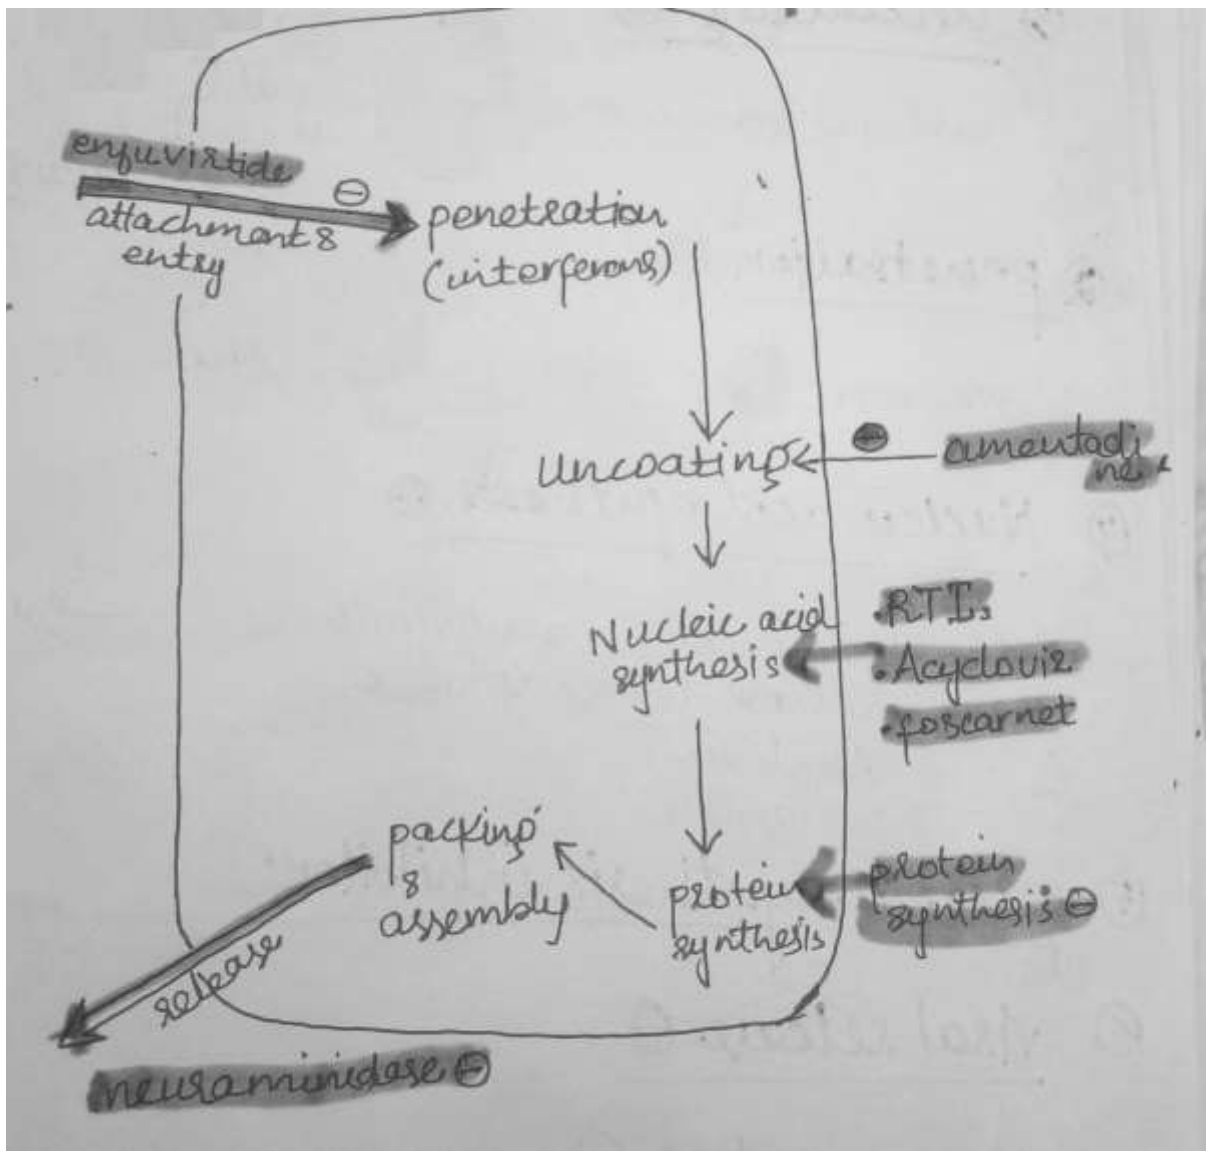 enfuvirtide
⊖
attachment &
entry
penetration
(interferons)
Uncoating
⊖
amentadi
ne
Nucleic acid
synthesis
.RTI
.Acyclovir
.foscarnet
packing
&
assembly
protein
synthesis
protein
synthesis ⊖
release
neuraminidase ⊖